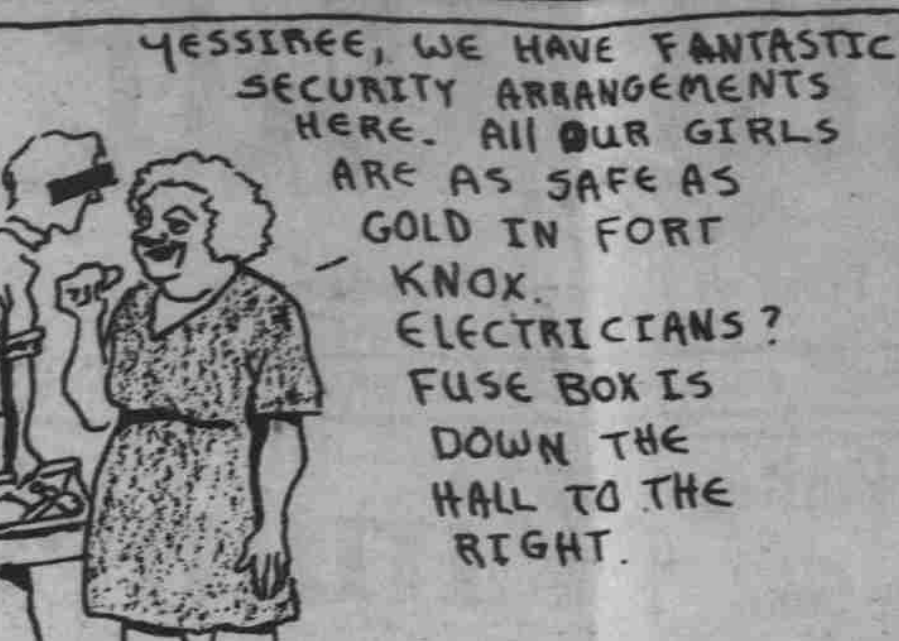 YESSIREE, WE HAVE FANTASTIC
SECURITY ARRANGEMENTS
HERE. All OUR GIRLS
ARE AS SAFE AS
GOLD IN FORT
KNOX.
ELECTRICIANS?
FUSE BOX IS
DOWN THE
HALL TO THE
RIGHT.